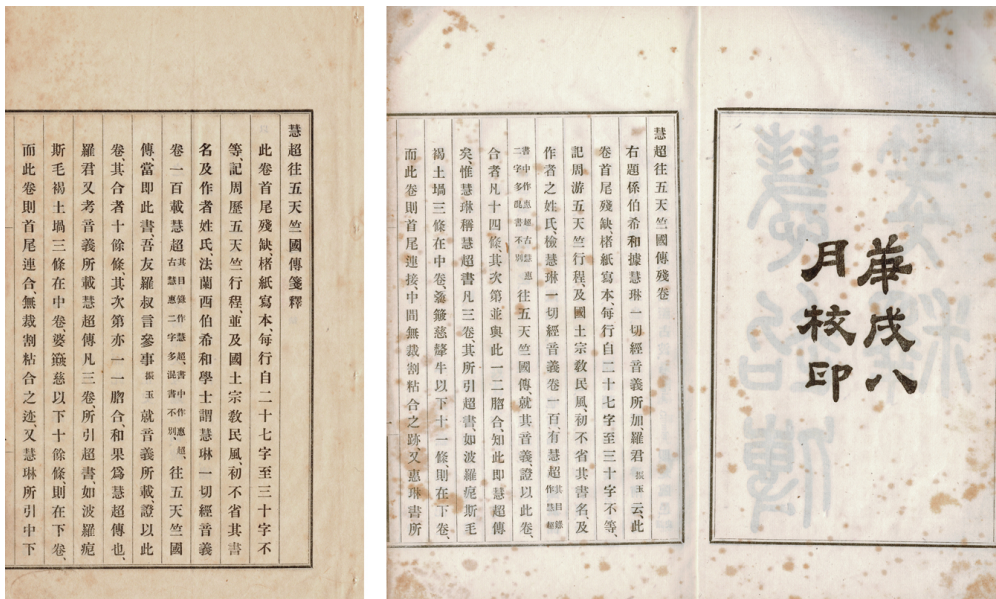 慧超往五天竺國傳箋釋
此卷首尾殘缺楮紙寫本、每行自二十七字至三十字不
等、記周歷五天竺行程、並及國土宗教民風、初不省其書
名及作者姓氏、法蘭西伯希和學士謂慧琳一切經音義
卷一百載慧超其目錄作慧超、書中作惠超、古慧惠二字多混書不別、往五天竺國
傳、當即此書、吾友羅叔言參事振玉就音義所載、證以此
卷、其合者十餘條、其次第亦一一脗合、和果爲慧超傳也、
羅君又考音義所載慧超傳凡三卷、所引超書如波羅痆
斯毛褐土堝三條在中卷、婆簸慈以下十餘條則在下卷、
而此卷則首尾連合、無裁割粘合之迹、又慧琳所引中下
庚戌八
月校印
慧超往五天竺國傳殘卷
右題係伯希和據慧琳一切經音義所加、羅君振玉云、此
卷首尾殘缺楮紙寫本、每行自二十七字至三十字不等、
記周游五天竺行程、及國土宗教民風、初不省其書名及
作者之姓氏、檢慧琳一切經音義卷一百、有慧超其目錄作慧超
書中作惠超古慧惠二字多混書不別往五天竺國傳、就其音義、證以此卷、
合者凡十四條、其次第並與此一二脗合、知此即慧超傳
矣、惟慧琳稱慧超書凡三卷、其所引超書、如波羅痆斯毛
褐土堝三條在中卷、簸慈氂牛以下十一條則在下卷、
而此卷則首尾連接、中間無裁割粘合之跡、又惠琳書所